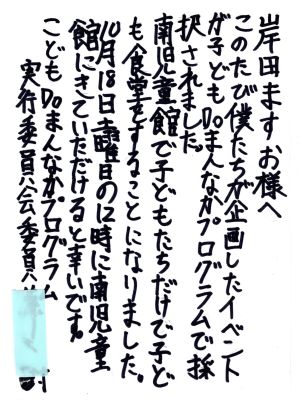 岸田ますお様へ
このたび僕たちが企画したイベント
が子どもDoまんなかプログラムで採
択されました。
南児童館で子どもたちだけで子ど
も食堂をすることになりました。
10月18日土曜日の12時に南児童
館にきていただけると幸いです。
こどもDoまんなかプログラム
実行委員会委員